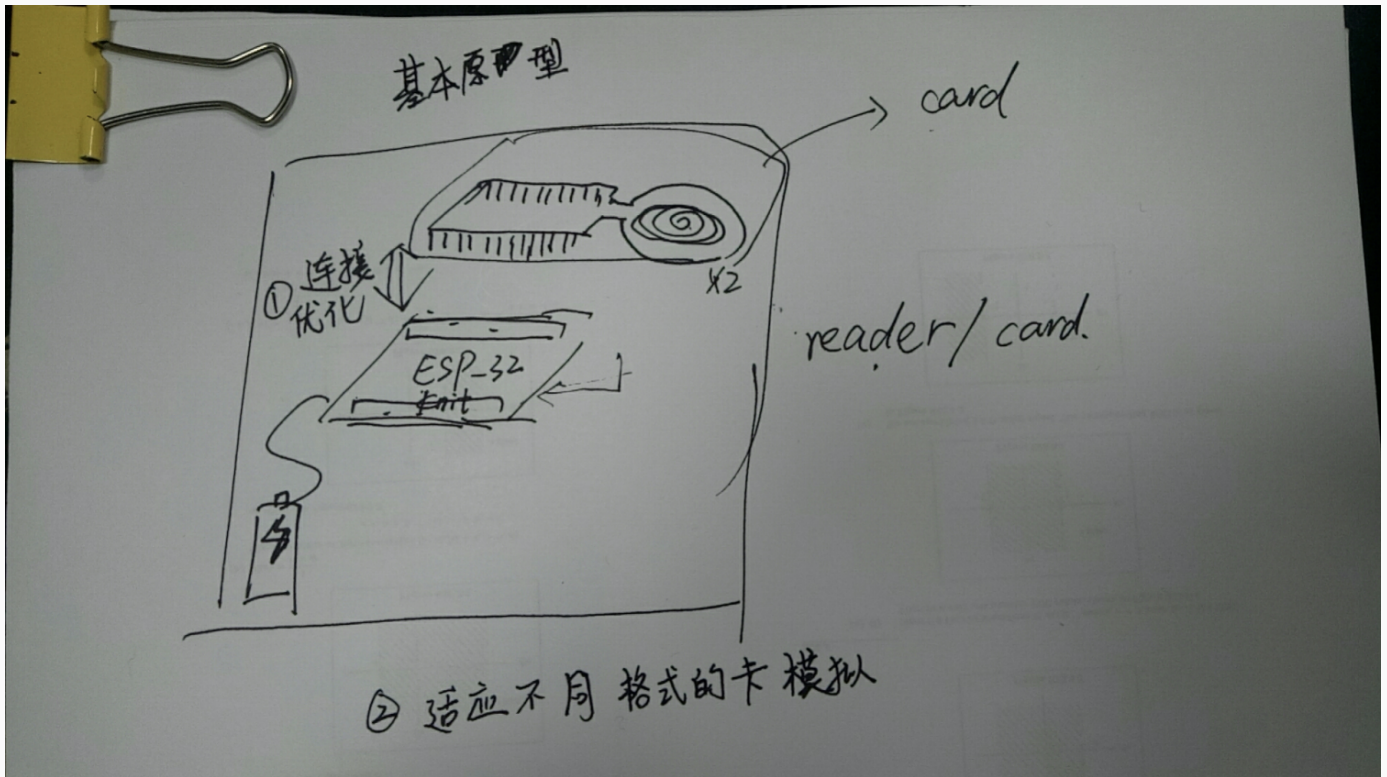 基本原型
card
×2
① 连接
优化
reader/card.
ESP-32
② 适应不同格式的卡模拟